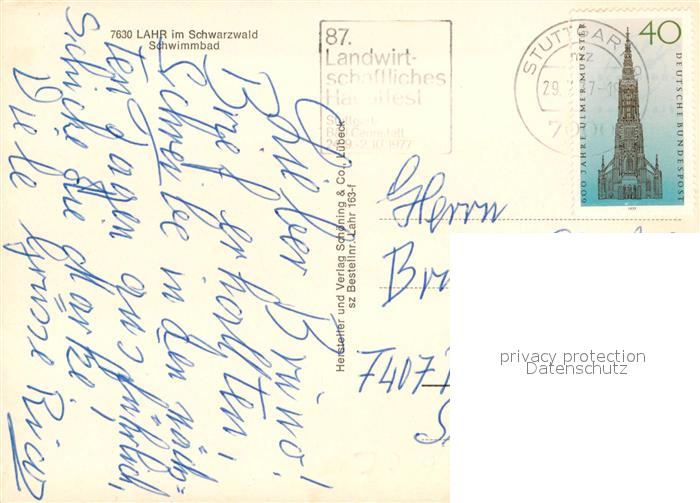 7630 LAHR im Schwarzwald
Schwimmbad
Lieber Bruno!
Brief erhalten,
Schreibe in den näch=
ten Tagen ausführlich,
Schicke die Marke!
Viele Grüsse
Hersteller und Verlag Schöning & Co., Lübeck
sz Bestellnr.: Lahr 163-f
87.
Landwirt-
schaftliches
Hauptfest
Stuttgart-
Bad Cannstatt
24.9.-2.10.1977
STUTTGART
29.
40
600 JAHRE ULMER MÜNSTER
DEUTSCHE BUNDESPOST
1977
Herrn
F7407
privacy protection
Datenschutz